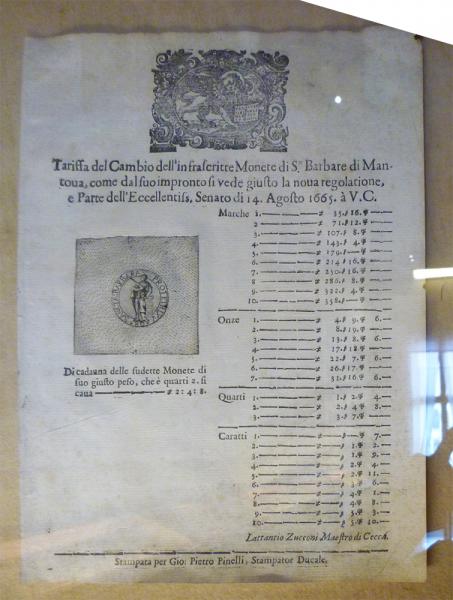 Tariffa del Cambio dell'infrascritte Monete di S.ª Barbare di Man-
toua, come dal suo impronto si vede giusto la noua regolatione,
e Parte dell'Eccellentiss. Senato di 14. Agosto 1665. à V.C.
Marche 1. — ₤ 35.ß 16.₰ —
2. — ₤ 71.ß 12.₰ —
3. — ₤ 107.ß 8.₰ —
4. — ₤ 143.ß 4.₰ —
5. — ₤ 179.ß —₰ —
6. — ₤ 214.ß 16.₰ —
7. — ₤ 250.ß 16.₰ —
8. — ₤ 286.ß 8.₰ —
9. — ₤ 322.ß 4.₰ —
10. — ₤ 358.ß —₰ —
Onze 1. — ₤ 4.ß 9.₰ 6.
2. — ₤ 8.ß 19.₰ —
3. — ₤ 13.ß 8.₰ 6.
4. — ₤ 17.ß 18.₰ —
5. — ₤ 22.ß 7.₰ 6.
6. — ₤ 26.ß 17.₰ —
7. — ₤ 31.ß 16.₰ 6.
Quarti 1. — ₤ 1.ß 2.₰ 4.
2. — ₤ 2.ß 4.₰ 8.
3. — ₤ 3.ß 7.₰ —
Caratti 1. — ₤ —ß —₰ 7.
2. — ₤ —ß 1.₰ 2.
3. — ₤ —ß 1.₰ 9.
4. — ₤ —ß 2.₰ 4.
5. — ₤ —ß 2.₰ 11.
6. — ₤ —ß 3.₰ 6.
7. — ₤ —ß 4.₰ 1.
8. — ₤ —ß 4.₰ 8.
9. — ₤ —ß 5.₰ 3.
10. — ₤ —ß 5.₰ 10.
Di cadauna delle sudette Monete di
suo giusto peso, che è quarti 2. si
caua — ₤ 2: 4: 8.
Lattantio Zucconi Maestro di Cecca.
Stampata per Gio: Pietro Pinelli, Stampator Ducale.